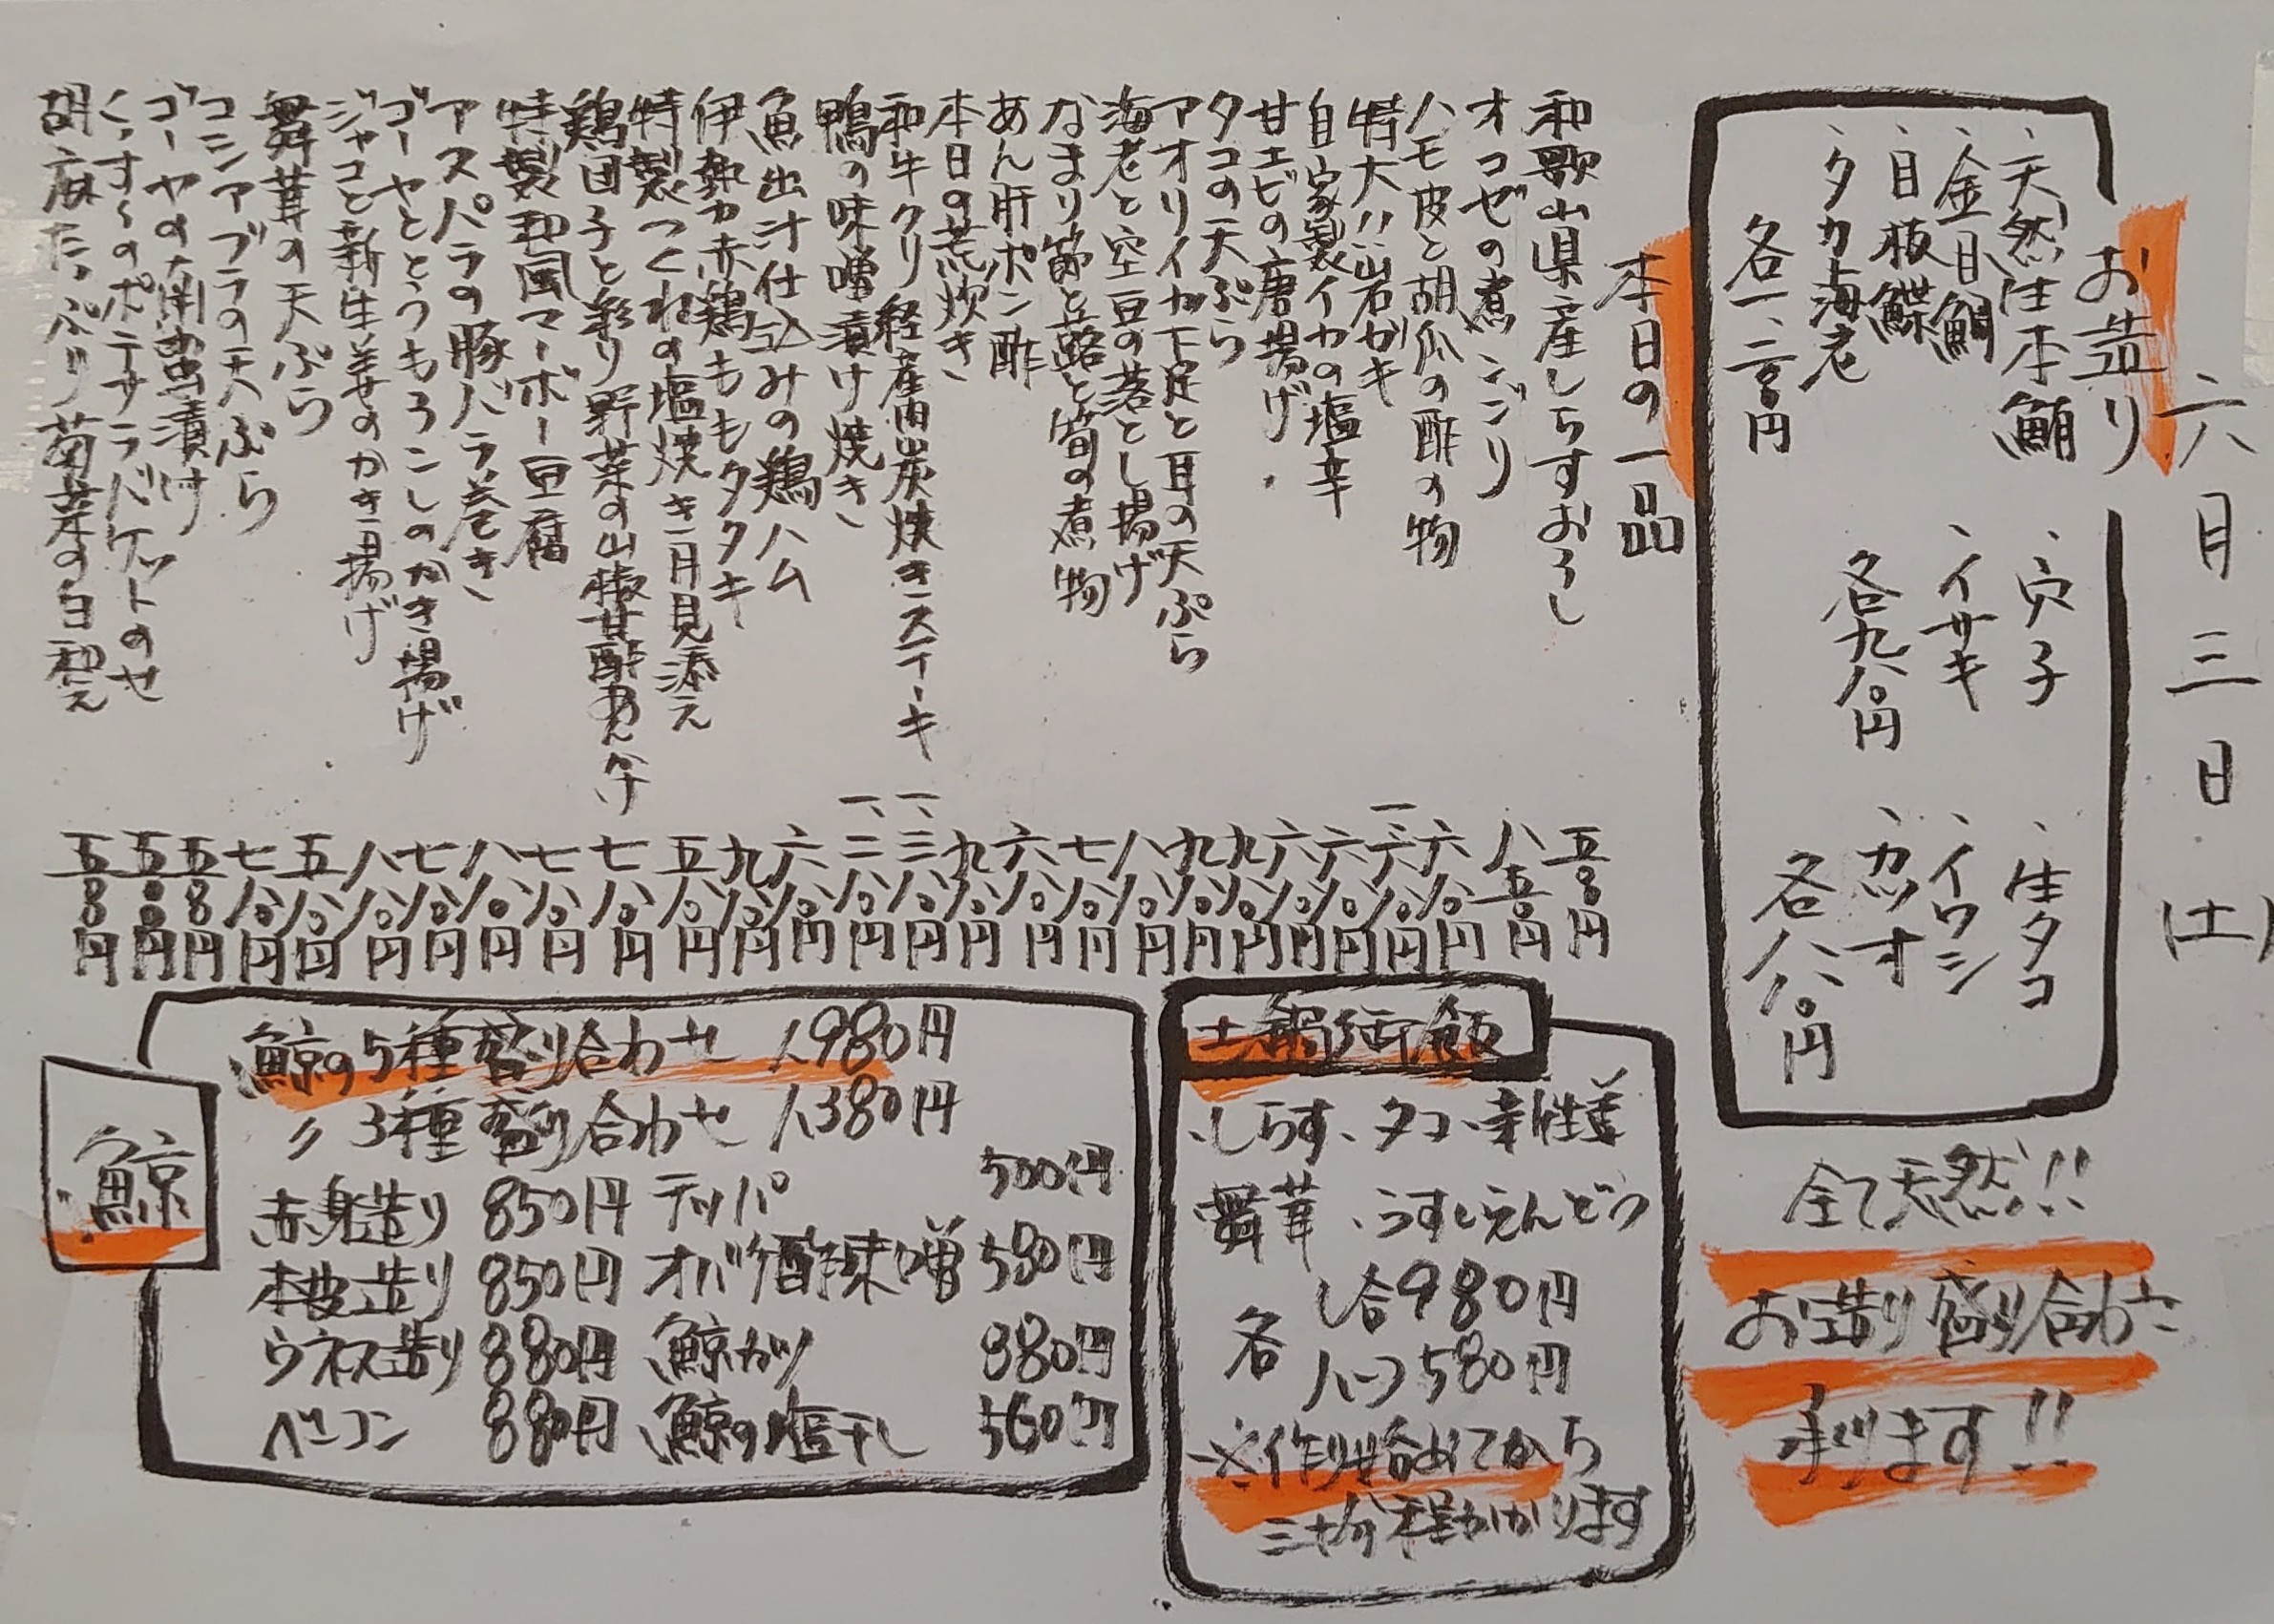 六月三日(土)
お造り
、天然生本鮪
、金目鯛
、目板鰈
、タカ海老
各一、二〇〇円
、穴子
、イサキ
各九八〇円
、生タコ
、イワシ
、カツオ
各八八〇円
全て天然!!
お造り盛り合わせ
承ります!!
本日の一品
和歌山県産しらすおろし 五〇〇円
オコゼの煮こごり 八五〇円
ハモ皮と胡瓜の酢の物 六八〇円
特大!!岩ガキ
自家製イカの塩辛 六八〇円
甘エビの唐揚げ 六八〇円
タコの天ぷら 九八〇円
アオリイカ下足と耳の天ぷら 九八〇円
海老と空豆の落とし揚げ 八八〇円
なまり節と蕗と筍の煮物 七八〇円
あん肝ポン酢 六八〇円
本日の荒炊き 九八〇円
和牛クリ 経産肉炭焼きステーキ 一、三八〇円
鴨の味噌漬け焼き 一、二八〇円
魚出汁仕込みの鶏ハム 六八〇円
伊勢赤鶏ももタタキ 九八〇円
特製つくねの塩焼き 月見添え 五八〇円
鶏団子と彩り野菜の山椒甘酢あんかけ 七八〇円
特製和風マーボー豆腐 七八〇円
アスパラの豚バラ巻き 八八〇円
ゴーヤととうもろこしのかき揚げ 七八〇円
ジャコと新生姜のかき揚げ 八八〇円
舞茸の天ぷら 五八〇円
コシアブラの天ぷら 七八〇円
ゴーヤの南蛮漬け 五〇〇円
くっすくのポテサラバケットのせ 五〇〇円
胡麻たっぷり菊菜の白和え 五〇〇円
土鍋御飯
、しらす、タコ、新生姜
舞茸、うすいえんどう
各
1合980円
ハーフ580円
※作り始めてから
三十分程かかります
鯨
鯨の5種盛り合わせ 1,980円
〃 3種盛り合わせ 1,380円
赤身造り 850円 テッパ 500円
本皮造り 850円 オバケ酢味噌 580円
ウネス造り 880円 鯨カツ 880円
ベーコン 880円 鯨の塩干し 560円